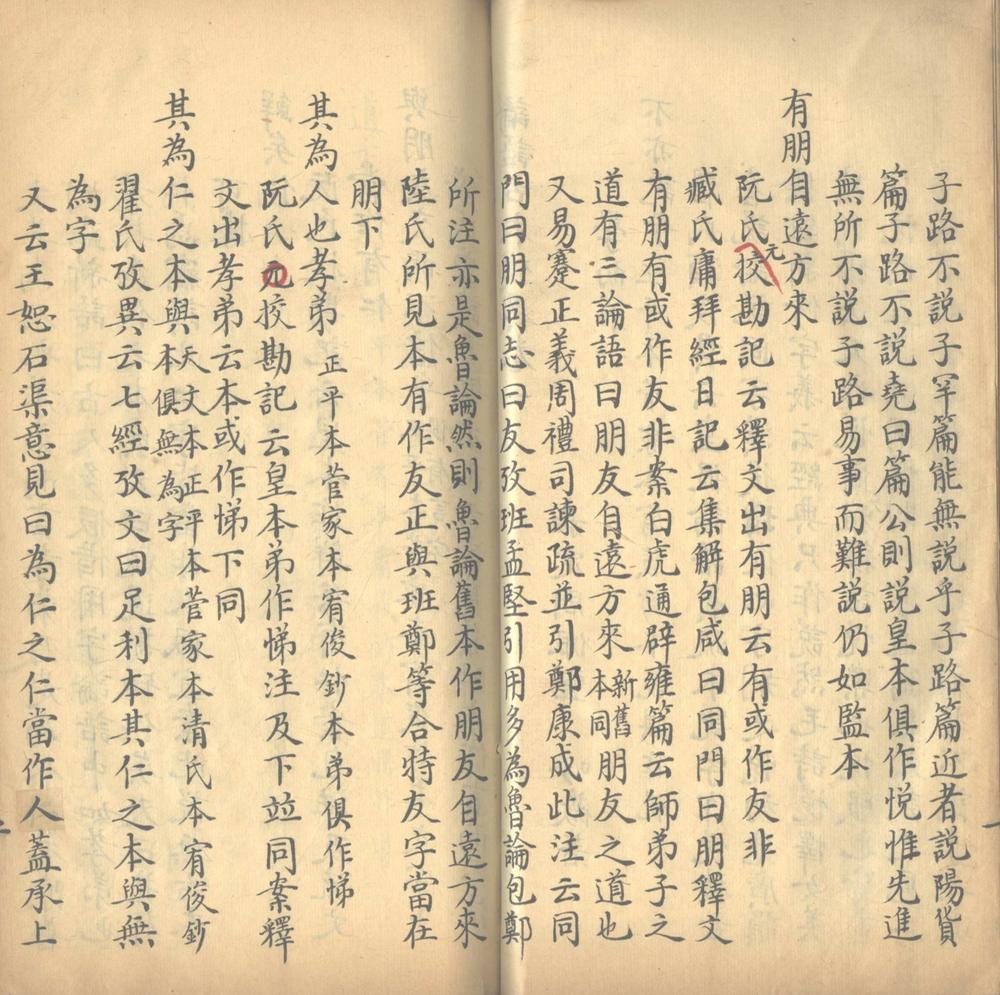 子路不説子罕篇能無説乎子路篇近者説陽貨
篇子路不説堯曰篇公則説皇本俱作悦惟先進
無所不説子路易事而難説仍如監本
有朋自遠方來
阮氏元挍勘記云釋文出有朋云有或作友非
臧氏庸拜經日記云集解包咸曰同門曰朋釋文
有朋有或作友非案白虎通辟雍篇云師弟子之
道有三論語曰朋友自遠方來新舊本同朋友之道也
又易蹇正義周禮司諫疏並引鄭康成此注云同
門曰朋同志曰友攷班孟堅引用多為魯論包鄭
所注亦是魯論然則魯論舊本作朋友自遠方來
陸氏所見本有作友正與班鄭等合特友字當在
朋下
其為人也孝弟正平本菅家本宥俊鈔本弟俱作悌
阮氏元挍勘記云皇本弟作悌注及下並同案釋
文出孝弟云本或作悌下同
其為仁之本與天文本正平本菅家本清氏本宥俊鈔本俱無為字
翟氏攷異云七經攷文曰足利本其仁之本與無
為字
又云王恕石渠意見曰為仁之仁當作人蓋承上